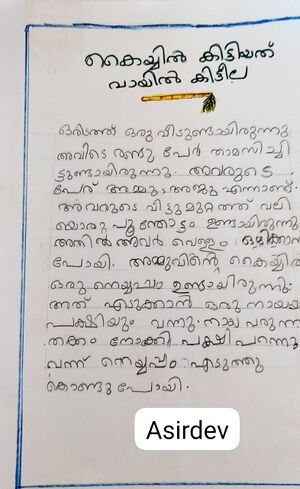 കൈയ്യിൽ കിട്ടിയത്
വായിൽ കിട്ടീല
ഒരിടത്ത് ഒരു വീടുണ്ടായിരുന്നു
അവിടെ രണ്ടു പേർ താമസിച്ചി
ട്ടുണ്ടായിരുന്നു. അവരുടെ
പേര് അമ്മു, അജു എന്നാണ്.
അവരുടെ വീട്ടുമുറ്റത്ത് വലി
യൊരു പൂന്തോട്ടം ഉണ്ടായിരുന്നു
അതിൽ അവർ വെള്ളം ഒഴിക്കാൻ
പോയി. അമ്മുവിന്റെ കൈയ്യിൽ
ഒരു നെയ്യപ്പം ഉണ്ടായിരുന്നു.
അത് എടുക്കാൻ ഒരു നായയ
പക്ഷിയും വന്നു. നായ വരുന്ന
തക്കം നോക്കി പക്ഷി പറന്നു
വന്ന് നെയ്യപ്പം എടുത്തു
കൊണ്ടുപോയി.
Asirdev